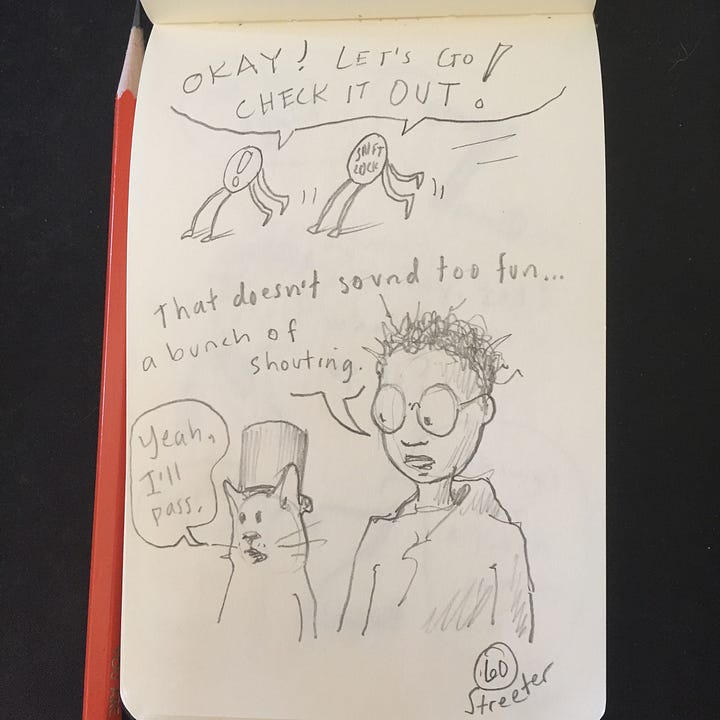 OKAY! LET'S GO!
CHECK IT OUT.
!
SHIFT
LOCK
That doesn't sound too fun...
a bunch of
shouting.
Yeah,
I'll
pass.
60
Streeter